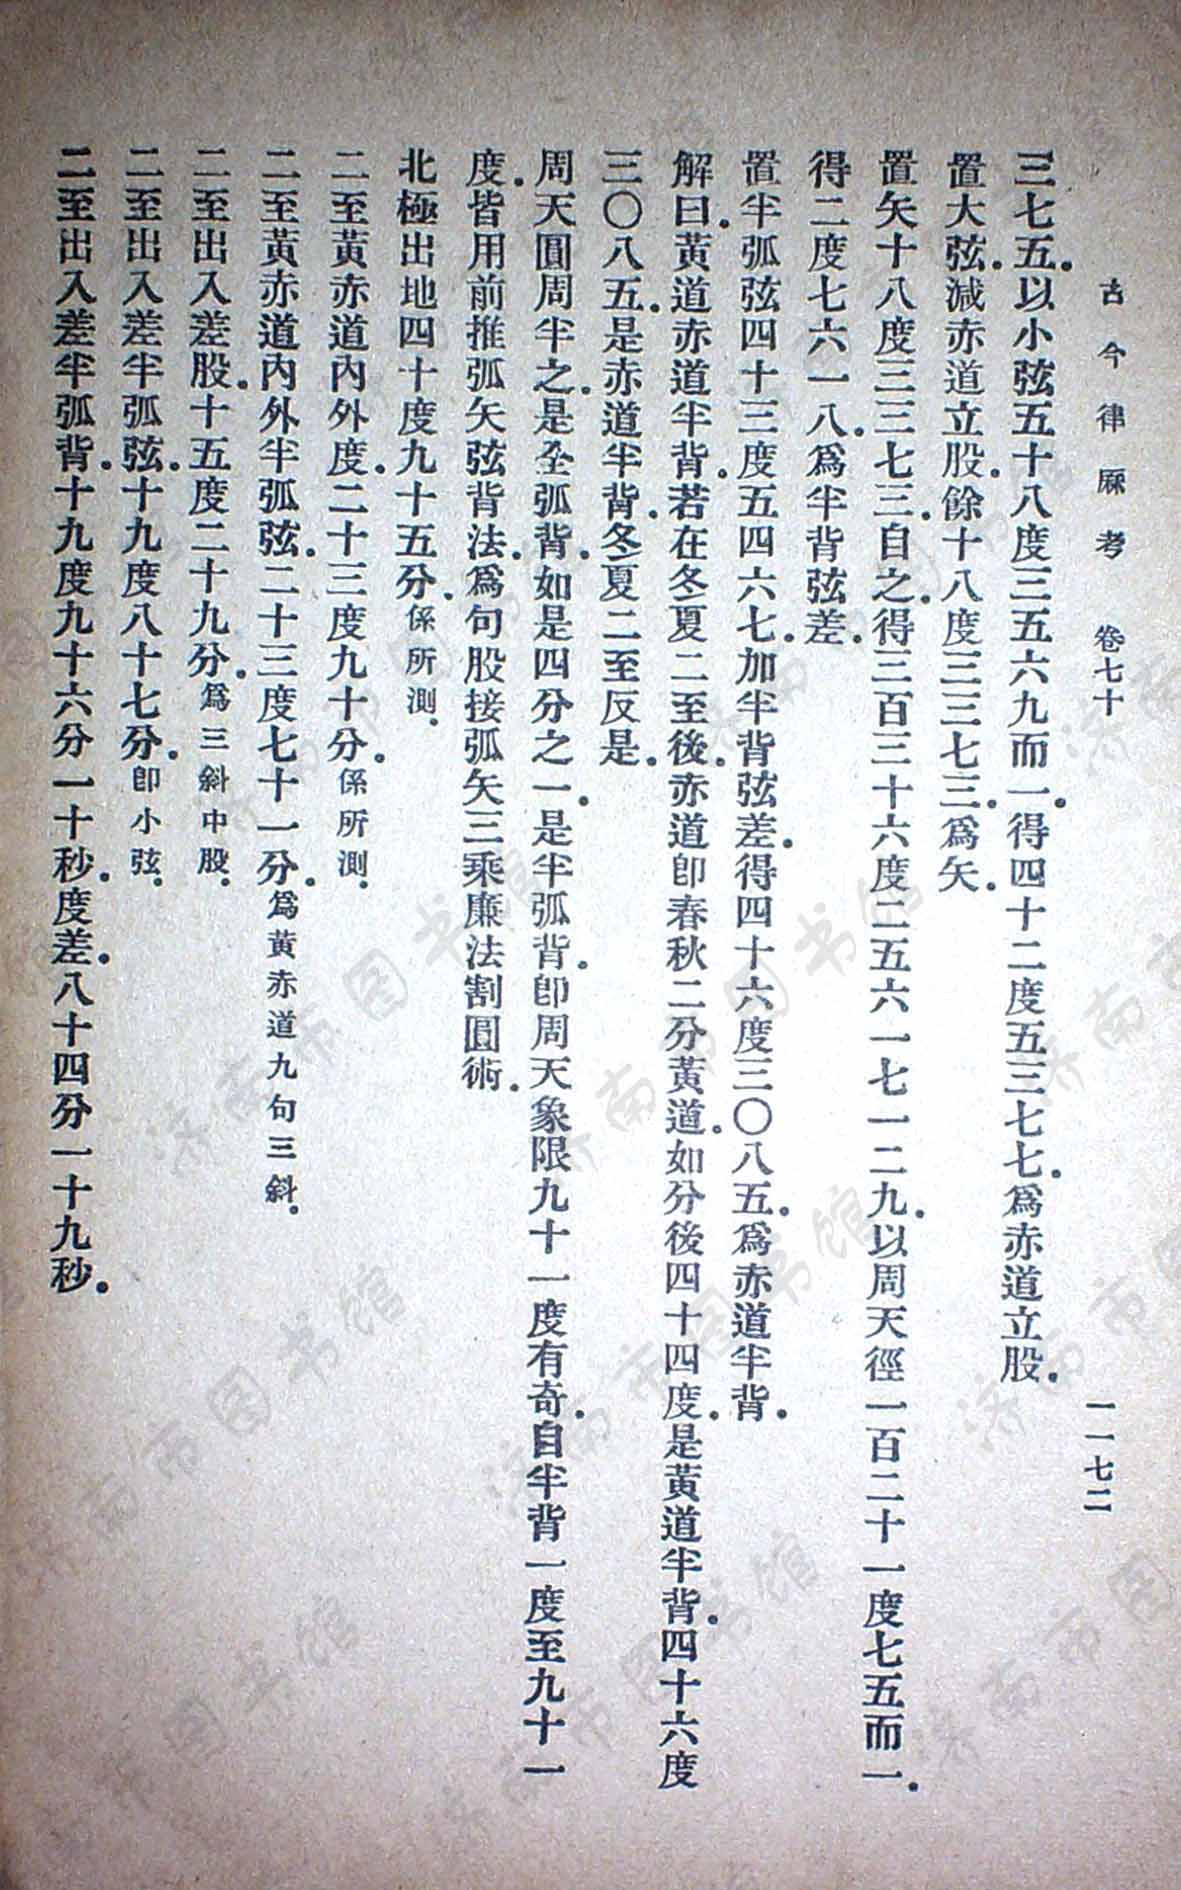 古今律厤考　卷七十　一一七二
三七五以小弦五十八度三五六九而一得四十二度五三七七爲赤道立股
置大弦減赤道立股餘十八度三三七三爲矢
置矢十八度三三七三自之得三百三十六度二五六一七一二九以周天徑一百二十一度七五而一
得二度七六一八爲半背弦差
置半弧弦四十三度五四六七加半背弦差得四十六度三〇八五爲赤道半背
解曰黃道赤道半背若在冬夏二至後赤道卽春秋二分黃道如分後四十四度是黃道半背四十六度
三〇八五是赤道半背冬夏二至反是
周天圓周半之是全弧背如是四分之一是半弧背卽周天象限九十一度有奇自半背一度至九十一
度皆用前推弧矢弦背法爲句股接弧矢三乘廉法割圓術
北極出地四十度九十五分係所測
二至黃赤道內外度二十三度九十分係所測
二至黃赤道內外半弧弦二十三度七十一分爲黃赤道九句三斜
二至出入差股十五度二十九分爲三斜中股
二至出入差半弧弦十九度八十七分卽小弦
二至出入差半弧背十九度九十六分一十秒度差八十四分一十九秒
济南市图书馆